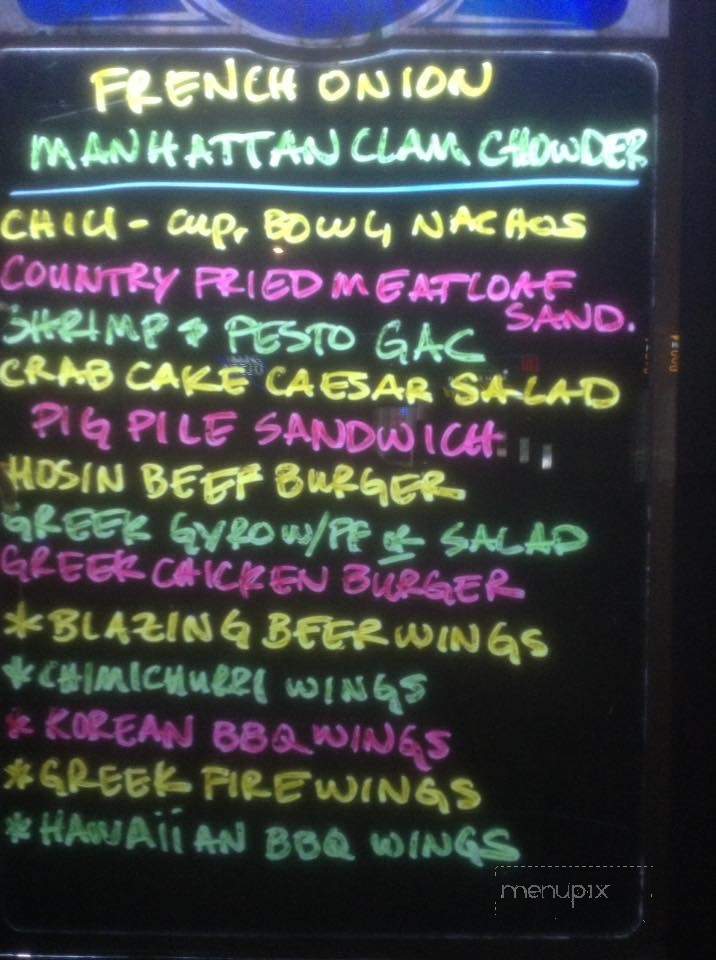 FRENCH ONION
MANHATTAN CLAM CHOWDER
CHILI - CUP, BOWL, NACHOS
COUNTRY FRIED MEATLOAF
SAND.
SHRIMP & PESTO GAC
CRAB CAKE CAESAR SALAD
PIG PILE SANDWICH
HOSIN BEEF BURGER
GREEK GYRO W/FF or SALAD
GREEK CHICKEN BURGER
*BLAZING BEER WINGS
*CHIMICHURRI WINGS
* KOREAN BBQ WINGS
*GREEK FIRE WINGS
*HAWAiiAN BBQ WINGS
menupix